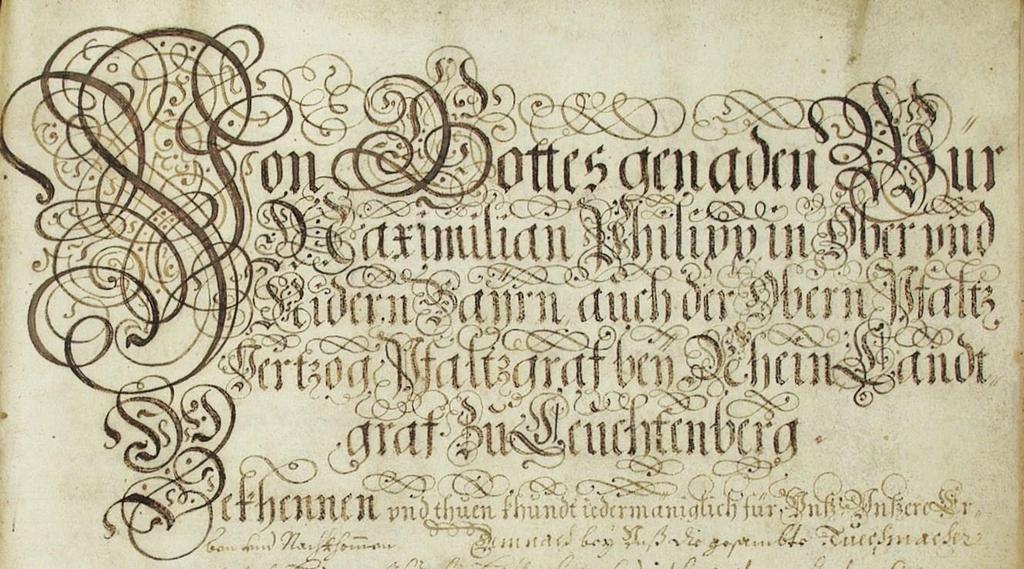 Von Gottes genaden Wür
Maximilian Philipp in Ober vnd
Nidern Bayrn auch der Obern Pfaltz
Hertzog Pfaltzgraf bey Rhein Landt
graf Zu Leuchtenberg
Bekhennen vnd thuen khundt iedermaniglich für Vnß Vnsere Er
ben vnd Nachkhommen Demnach bey Vnß die gesambte Tuechmacher